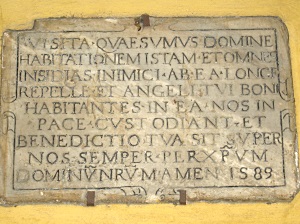 VISITA·QVAESVMVS DOMINE
HABITATIONEM ISTAM·ET OMNES
INSIDIAS INIMICI·AB·EA·LONGE
REPELLE·ET·ANGELI·TVI BONI
HABITANTES·IN EA·NOS·IN
PACE·CVSTODIANT·ET
BENEDICTIO TVA·SIT·SVPER
NOS·SEMPER·PER XPVM
DOMINVNRVM·AMEN 1589